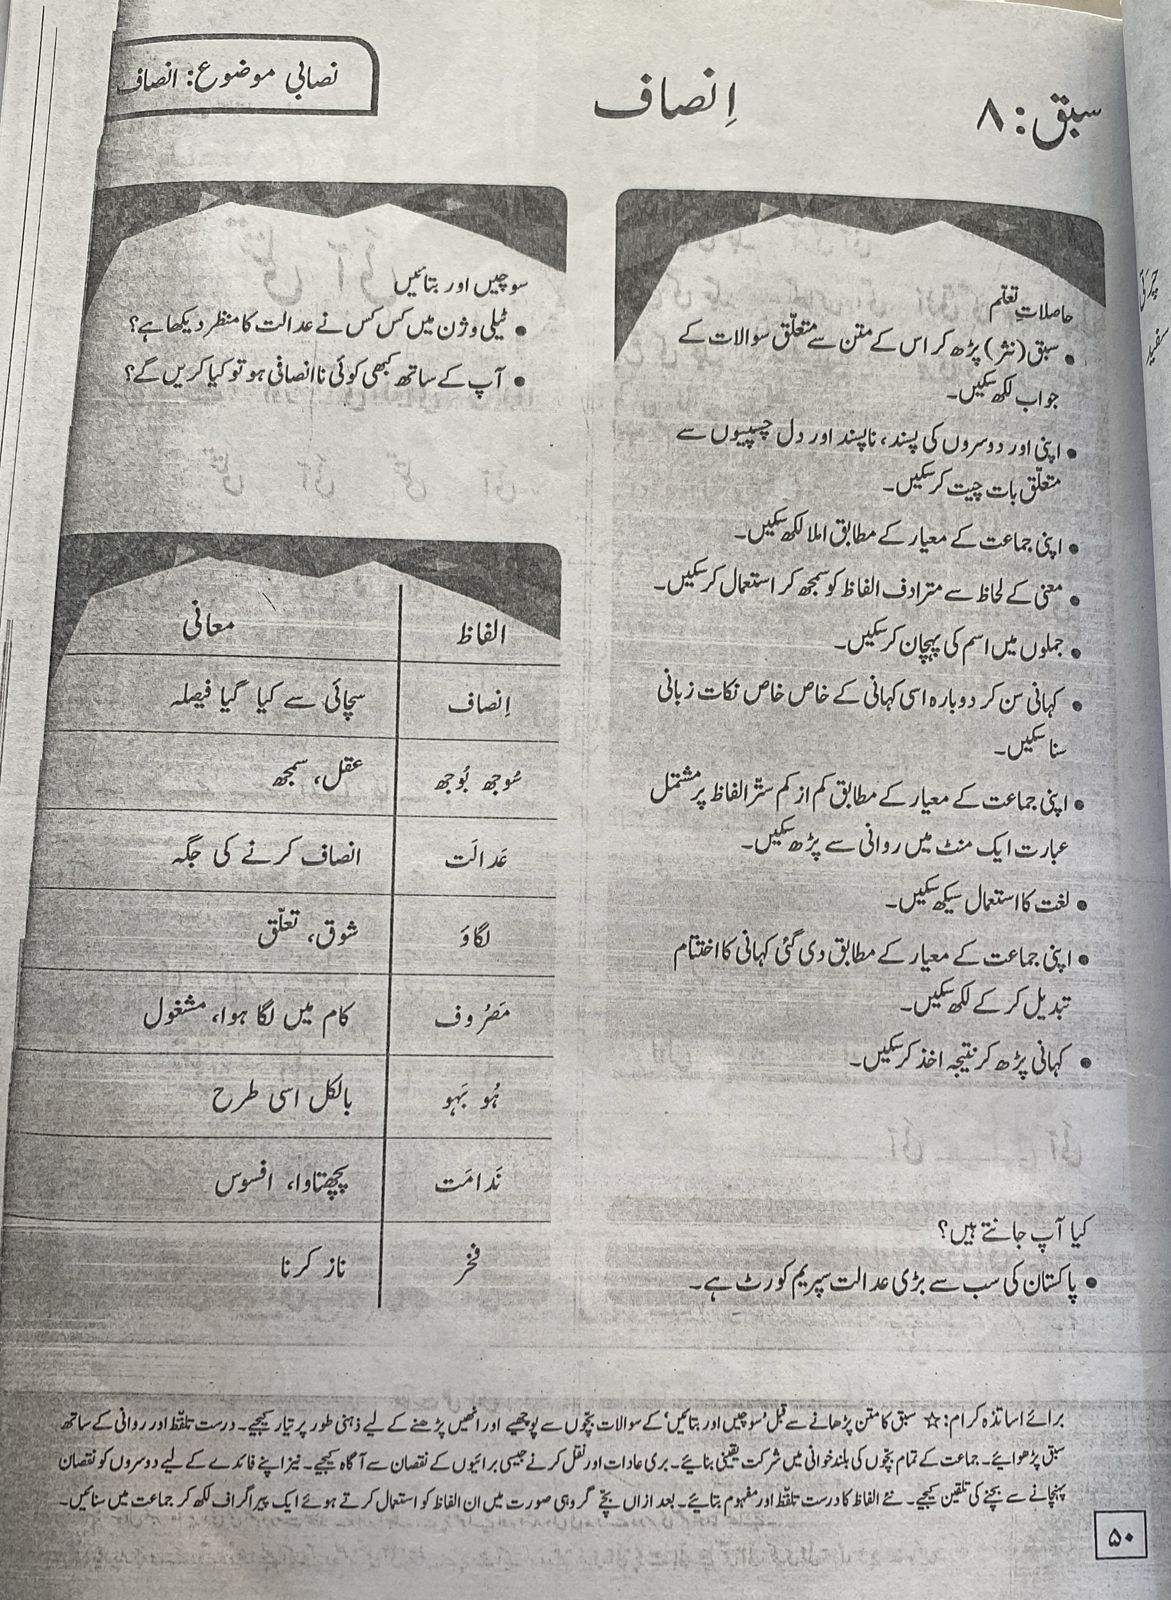 سبق: ۸
اِنصاف
نصابی موضوع: انصاف
حاصلاتِ تعلّم
• سبق (نثر) پڑھ کر اس کے متن سے متعلّق سوالات کے
جواب لکھ سکیں۔
• اپنی اور دوسروں کی پسند، ناپسند اور دل چسپیوں سے
متعلّق بات چیت کر سکیں۔
• اپنی جماعت کے معیار کے مطابق املا لکھ سکیں۔
• معنی کے لحاظ سے مترادف الفاظ کو سمجھ کر استعمال کر سکیں۔
• جملوں میں اسم کی پہچان کر سکیں۔
• کہانی سن کر دوبارہ اسی کہانی کے خاص خاص نکات زبانی
سنا سکیں۔
• اپنی جماعت کے معیار کے مطابق کم از کم ستّر الفاظ پر مشتمل
عبارت ایک منٹ میں روانی سے پڑھ سکیں۔
• لغت کا استعمال سیکھ سکیں۔
• اپنی جماعت کے معیار کے مطابق دی گئی کہانی کا اختتام
تبدیل کر کے لکھ سکیں۔
• کہانی پڑھ کر نتیجہ اخذ کر سکیں۔
کیا آپ جانتے ہیں؟
• پاکستان کی سب سے بڑی عدالت سپریم کورٹ ہے۔
سوچیں اور بتائیں
• ٹیلی وژن میں کس کس نے عدالت کا منظر دیکھا ہے؟
• آپ کے ساتھ کبھی کوئی ناانصافی ہو تو کیا کریں گے؟
الفاظ معانی
اِنصاف سچائی سے کیا گیا فیصلہ
سُوجھ بُوجھ عقل، سمجھ
عَدالَت انصاف کرنے کی جگہ
لگاوَ شوق، تعلّق
مَصرُوف کام میں لگا ہوا، مشغول
ہُو بَہو بالکل اسی طرح
نَدامَت پچھتاوا، افسوس
فَخر ناز کرنا
برائے اساتذہ کرام: ☆ سبق کا متن پڑھانے سے قبل ’سوچیں اور بتائیں‘ کے سوالات بچّوں سے پوچھیے اور انھیں پڑھنے کے لیے ذہنی طور پر تیار کیجیے۔ درست تلفّظ اور روانی کے ساتھ
سبق پڑھوائیے۔ جماعت کے تمام بچّوں کی بلند خوانی میں شرکت یقینی بنائیے۔ بری عادات اور نقل کرنے جیسی برائیوں کے نقصان سے آگاہ کیجیے۔ نیز اپنے فائدے کے لیے دوسروں کو نقصان
پہنچانے سے بچنے کی تلقین کیجیے۔ نئے الفاظ کا درست تلفّظ اور مفہوم بتائیے۔ بعد ازاں بچّے گروہی صورت میں ان الفاظ کو استعمال کرتے ہوئے ایک پیراگراف لکھ کر جماعت میں سنائیں۔
۵۰